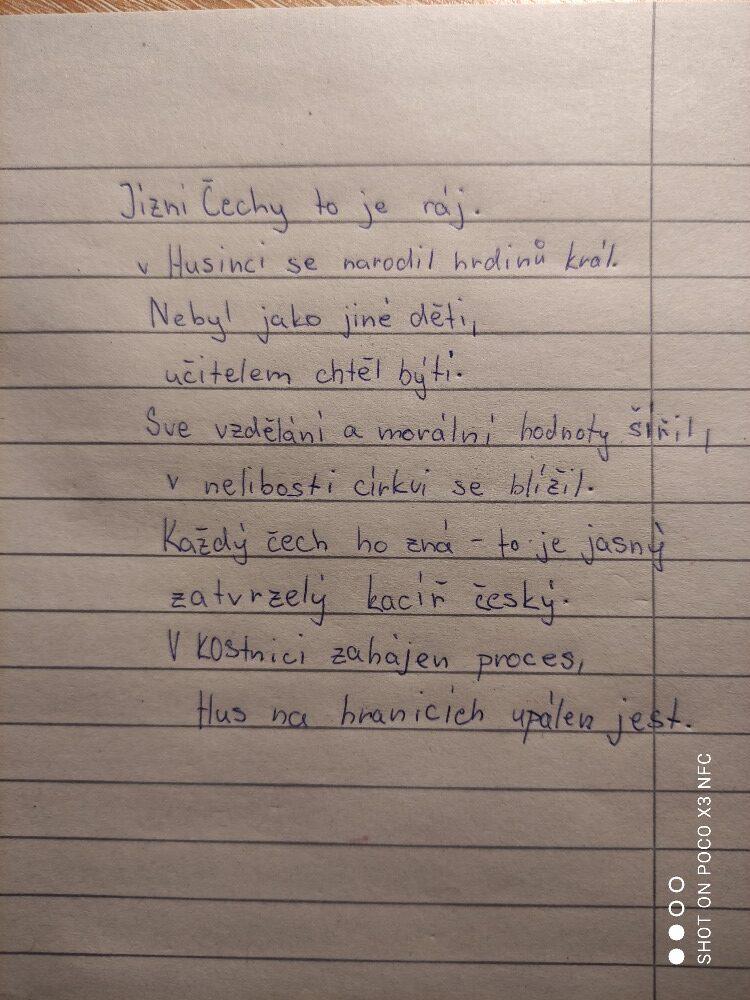 Jizni Čechy to je ráj.
v Husinci se narodil hrdinů král.
Nebyl jako jiné děti,
učitelem chtěl býti.
Sve vzdělání a morální hodnoty šířil,
v nelibosti cirkvi se blížil.
Každý čech ho zná - to je jasný
zatvrzelý kacíř český.
V kostnici zahájen proces,
Hus na hranicích upálen jest.
SHOT ON POCO X3 NFC